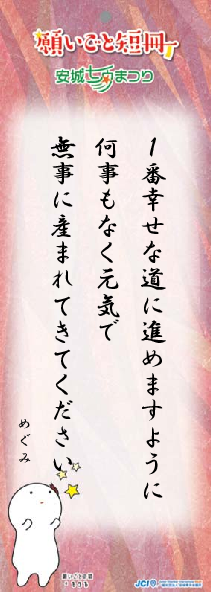 願いごと短冊
安城七夕まつり
1番幸せな道に進めますように
何事もなく元気で
無事に産まれてきてください
めぐみ
JCI